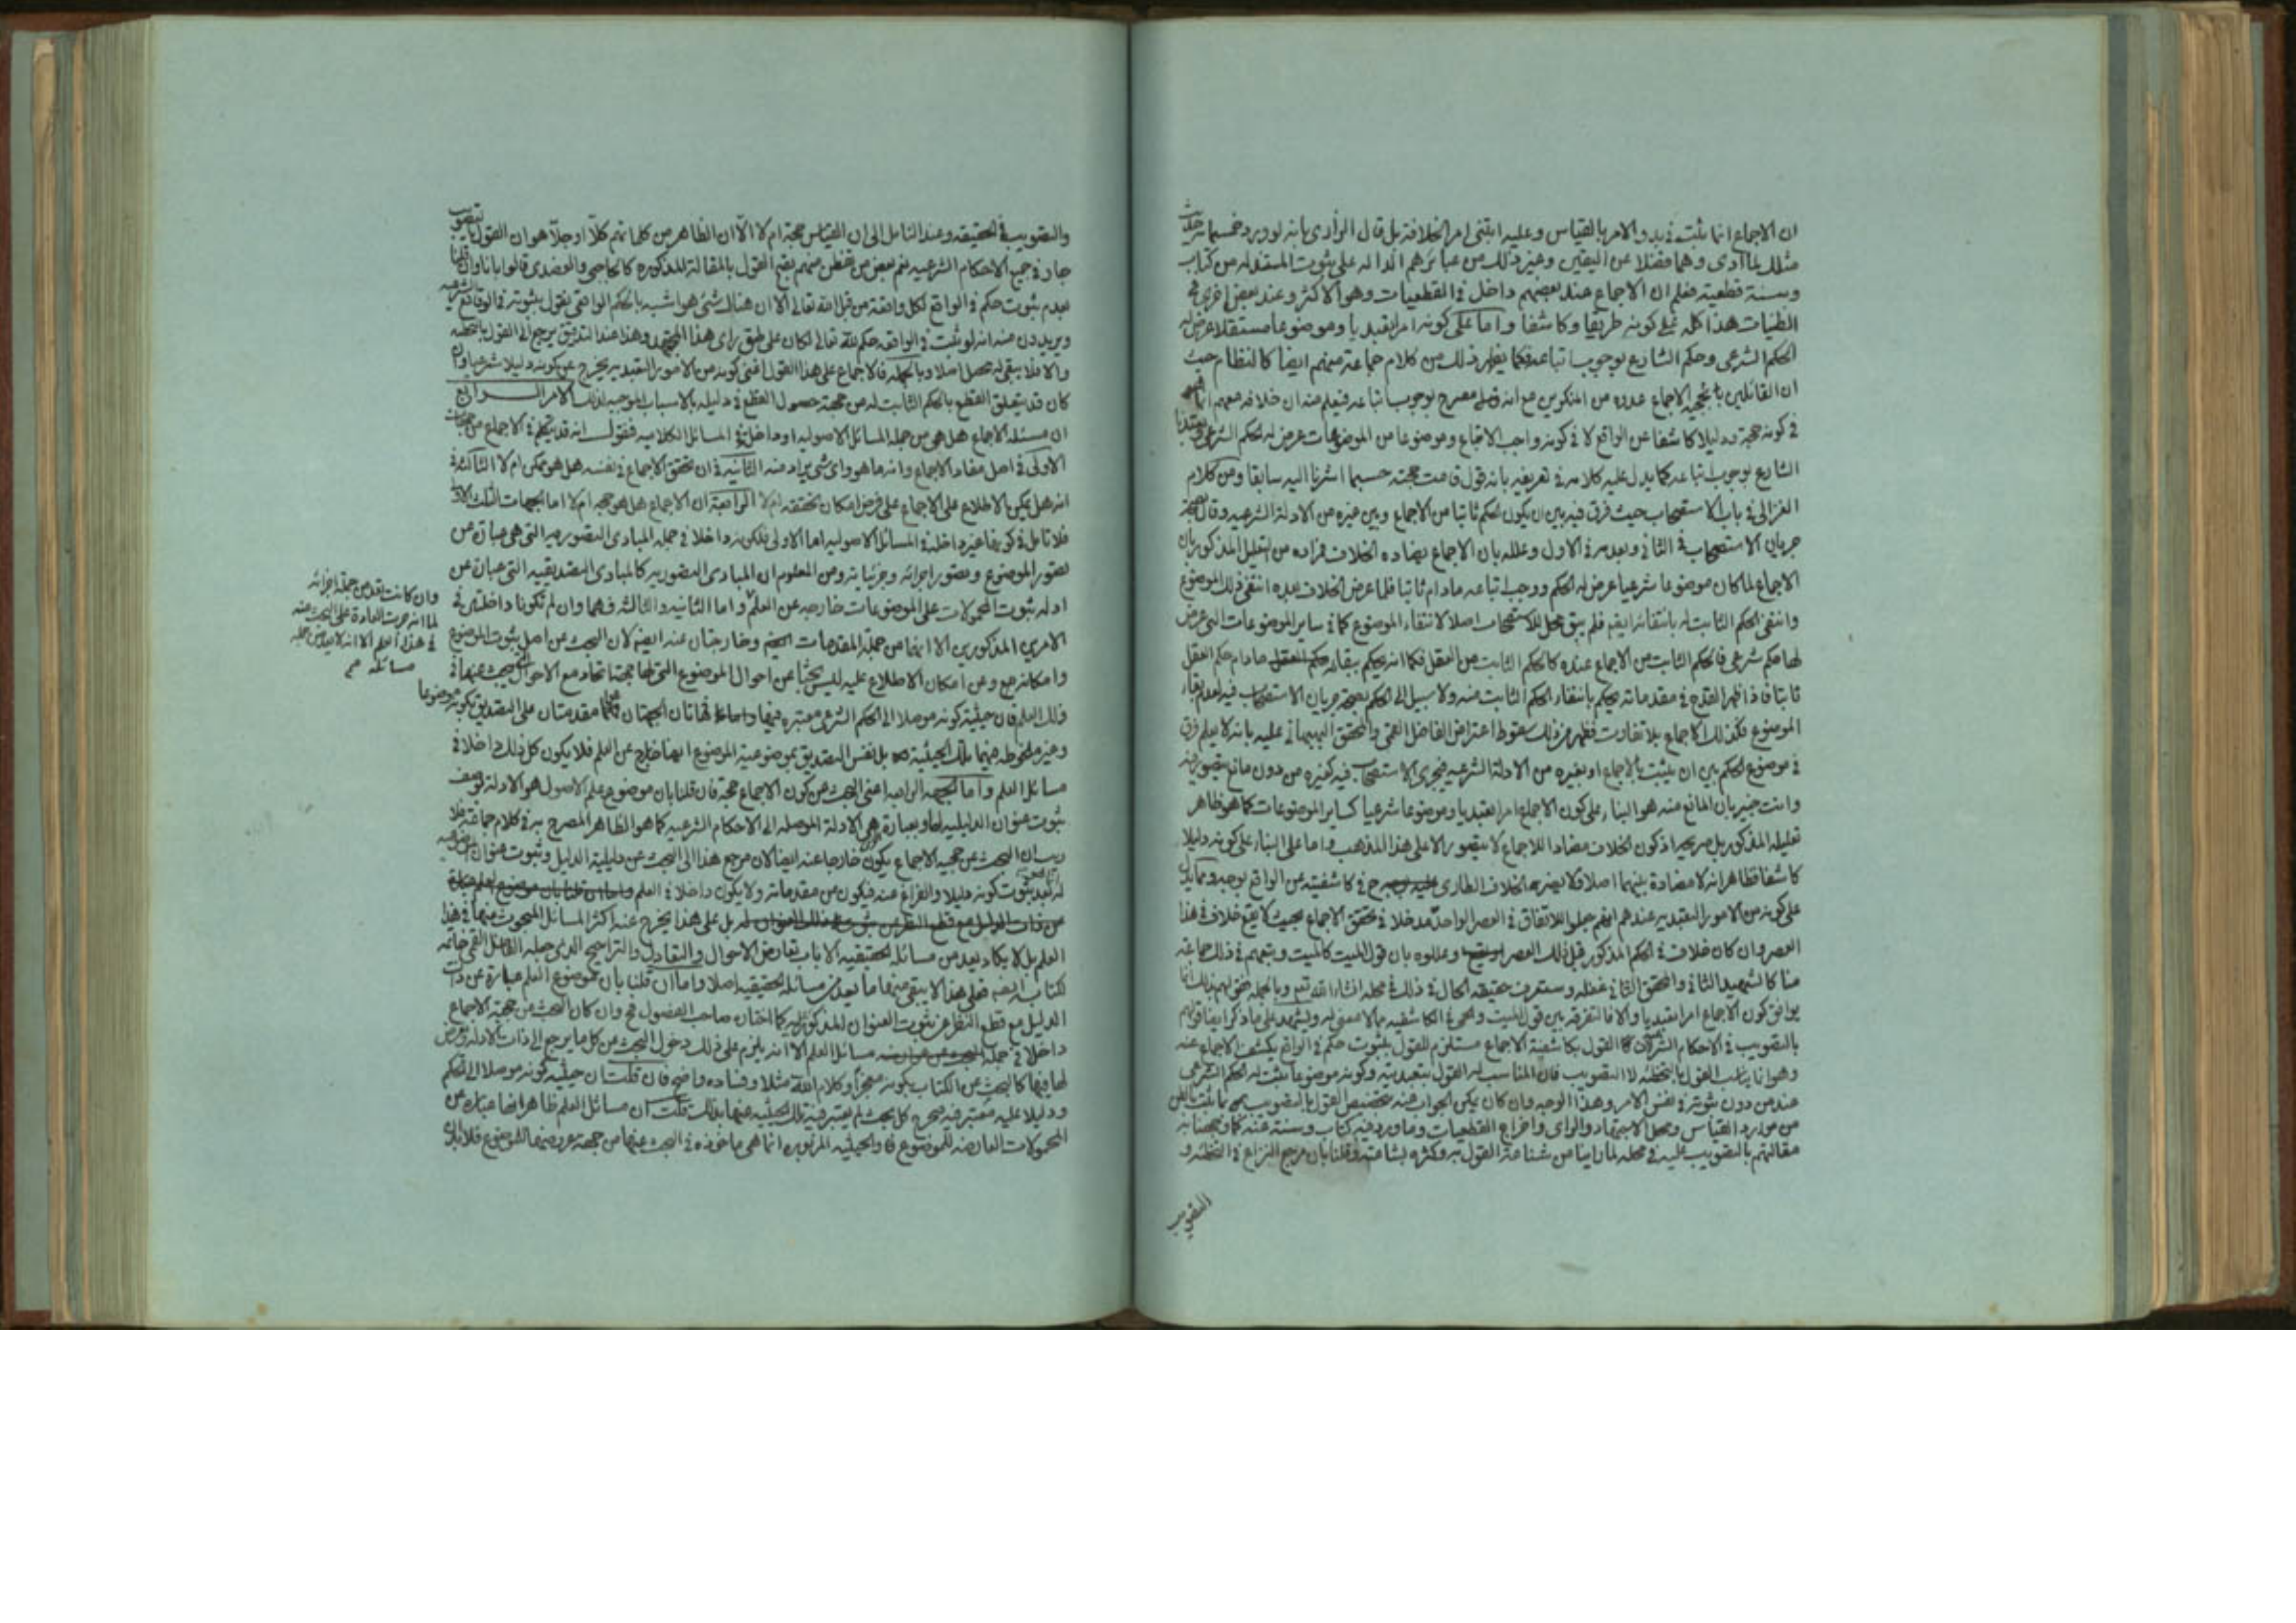 ان الاجماع انما يثبت في بدو الامر بالقياس وعليه ابتنى امر الخلافة بل قال الرازى بانه لو ورد خمسمائة
مثلك لما ادى وهما فضلا عن اليقين وغير ذلك من عبائرهم الدالة على ثبوت المستقد له من كتاب
وسنة قطعية فعلم ان الاجماع عند بعضهم داخل في القطعيات وهو الاكثر وعند بعض اخرى في
الظنيات هذا كله على كونه طريقا وكاشفا واما على كونه امرا تعبديا وموضوعا مستقلا عرض له
الحكم الشرعى وحكم الشارع بوجوب اتباعه فكما يظهر ذلك من كلام جماعة منهم ايضا كالنظام حيث
ان القائلين بحجية الاجماع عدوه من المنكرين مع انه مصرح بوجوب اتباعه فيعلم منه ان خلافه معهم
في كونه حجة ودليلا كاشفا عن الواقع لا في كونه واجب الاتباع وموضوعا من الموضوعات عرض له الحكم الشرعى
الشارع بوجوب اتباعه كما يدل عليه كلامه في تعريفه بانه قول قامت حجته حسبما اشرنا اليه سابقا ومن كلام
الغزالى في باب الاستصحاب حيث فرق فيه بين ان يكون الحكم ثابتا من الاجماع وبين غيره من الادلة الشرعيه وقال
جريان الاستصحاب في الثانى وبعدمه في الاول وعلله بان الاجماع يضاده الخلاف فمراده من التعليل المذكور بان
الاجماع لما كان موضوعا شرعيا عرض له الحكم ووجب اتباعه مادام ثابتا فلما عرض الخلاف بعده انتفى ذلك الموضوع
وانتفى الحكم الثابت له بانتفائه ايضا فلم يبق محل للاستصحاب اصلا لانتفاء الموضوع كما في ساير الموضوعات التى عرض
لها حكم شرعى فالحكم الثابت من الاجماع عنده كالحكم الثابت من العقل فكما انه يحكم ببقائه مادام حكم العقل
ثابتا فاذا ظهر القدح في مقدماته يحكم بانتفاء الحكم الثابت منه ولا سبيل الى الحكم بصحة جريان الاستصحاب فيه لعدم بقاء
الموضوع فكذلك الاجماع بلا تفاوت فظهر من ذلك سقوط اعتراض الفاضل القمى والمحقق البهبهانى عليه بانه لا يعلم فرق
في موضوع الحكم بين ان يثبت بالاجماع او بغيره من الادلة الشرعيه فيجرى الاستصحاب فيه كغيره من دون مانع يتصور فيه
وانت خبير بان المانع منه هو البناء على كون الاجماع امرا تعبديا وموضوعا شرعيا كساير الموضوعات كما هو ظاهر
تعليله المذكور بل صريحه اذ كون الخلاف مضادا للاجماع لا يتصور الا على هذا المذهب واما على البناء على كونه دليلا
كاشفا ظاهر انه لا مضادة بينهما اصلا فلا يضر الخلاف الطارى في كاشفيته عن الواقع بوجه ومما يدل
على كونه من الامور التعبديه عندهم انهم جعلوا للاتفاق في العصر الواحد مدخلا في تحقق الاجماع بحيث لا يقع خلاف في هذا
العصر وان كان خلاف في الحكم المذكور قبل ذلك العصر وعللوه بان قول الميت كالميت وتبعهم في ذلك جماعة
منا كالشهيد الثانى والمحقق الثانى غفلة وستعرف حقيقة الحال في ذلك في محله انشاء الله تعم وبالجملة فقولهم بذلك انما
يوافق كون الاجماع امرا تعبديا والا فالتفرقه بين قول الميت والحى في الكاشفيه مما لا معنى له ويشهد على ما ذكرنا ايضا قولهم
بالتصويب في الاحكام القول بكاشفية الاجماع مستلزم للقول بثبوت حكم في الواقع يكشف الاجماع عنه
وهو انما يناسب القول بالتخطئه لا التصويب فان المناسب له القول بتعبديته وكونه موضوعا يثبت له الحكم الشرعى
عنده من دون ثبوته في نفس الامر وهذا الوجه وان كان يمكن الجواب عنه بتخصيص القول بالتصويب
من موارد القياس ومحل الاجتهاد والراى واخراج القطعيات وما ورد فيه كتاب وسنة عنه
مقالتهم بالتصويب عليه في محله لما راينا من شناعة القول به وكثرة بشاعته وقلنا بان مرجع النزاع في التخطئه و
التصويب
والتصويب في الحقيقه وعند التامل الى ان القياس حجة ام لا الا ان الظاهر من كلماتهم كلا او جلا هو ان القول بالتصويب
جار في جميع الاحكام الشرعيه نعم بعض من تفطن منهم بقبح القول بالمقالة المذكوره كالحاجبى والعضدى قالوا بانا وان قلنا
بعدم ثبوت حكم في الواقع لكل واقعة من قبل الله تعالى الا ان هناك شئ هو اشبه بالحكم الواقعى نقول بثبوته في الوقايع الشرعيه
ويريدون منه انه لو ثبت في الواقعه حكم لله تعالى لكان على طبق راى هذا المجتهد وهذا عند التدقيق يرجع الى القول بالتخطئه
والا فلا يبقى له محصل اصلا وبالجملة فالاجماع على هذا القول اعنى كونه من الامور التعبديه يخرج عن كونه دليلا شرعيا وان
كان قد يتعلق القطع بالحكم الثابت له من جهة حصول القطع في دليله بالاسباب الموجبه لذلك الامر الـــرابع
ان مسئلة الاجماع هل هى من جملة المسائل الاصوليه او داخلة في المسائل الكلاميه فنقول انه قد يتكلم في الاجماع من جهات
الاولى في اصل مفاد الاجماع وانه ما هو واى شئ يراد منه الثانية في ان تحقق الاجماع في نفسه هل هو ممكن ام لا الثالثة في
انه هل يمكن الاطلاع على الاجماع على فرض امكان تحققه ام لا الرابعة ان الاجماع هل هو حجة ام لا اما الجهات الثلث الاول
فلا تامل في كونها غير داخلة في المسائل الاصوليه اما الاولى فلكونه داخلا في جملة المبادى التصوريه التى هى عبارة عن
تصور الموضوع وتصور اجزائه وجزئياته ومن المعلوم ان المبادى التصوريه كالمبادى التصديقيه التى عبارة عن
ادلة ثبوت المحمولات على الموضوعات خارجه عن العلم واما الثانيه والثالثه فهما وان لم تكونا داخلتين في
الامرين المذكورين الا انهما من جملة المقدمات وخارجتان عنه ايضا لان البحث عن اصل ثبوت الموضوع
وامكانه وعن امكان الاطلاع عليه ليس بحثا عن احوال الموضوع التى لها جهة اتحاد مع الاحوال المبحوث عنها في
ذلك العلم فان حيثية كونه موصلا الى الحكم الشرعى معتبره فيها فهاتان الجهتان مقدمتان على التصديق بكونه موضوعا
وغير ملحوظة فيهما تلك الحيثية بل نفس التصديق بموضوعية الموضوع ايضا خارج عن العلم فلا يكون كل ذلك داخلا في
مسائل العلم واما الجهة الرابعه اعنى البحث عن كون الاجماع حجة فان قلنا بان موضوع علم الاصول هو الادلة بوصف
ثبوت عنوان الدليليه لها وبعبارة هى الادلة الموصلة الى الاحكام الشرعيه كما هو الظاهر المصرح به في كلام جماعة فلا
ريب ان البحث عن حجية الاجماع يكون خارجا عنه ايضا لان مرجع هذا الى البحث عن دليلية الدليل وثبوت عنوان
له بعد ثبوت كونه دليلا والفراغ عنه فيكون من مقدماته ولا يكون داخلا في العلم
بل على هذا يخرج عنه اكثر المسائل المبحوث عنها في هذا
العلم بل لا يكاد يعد من مسائله الحقيقيه الا باب تعارض الاحوال والتعادل والتراجيح الذى جعله الفاضل القمى خاتمة
لكتابه فعلى هذا لا يبقى فيها ما يعد من مسائله الحقيقيه اصلا واما ان قلنا بان موضوع العلم عبارة عن ذات
الدليل مع قطع النظر عن ثبوت العنوان المذكور له كما اختاره صاحب الفصول فح وان كان البحث عن حجية الاجماع
داخلا في جملة مسائل العلم الا انه يلزم على ذلك دخول البحث عن كل ما يرجع الى ذات الادله ويعرض
لها فيها كالبحث عن الكتاب بكونه معجزا وكلام الله مثلا وفساده واضح فان قلت ان حيثية كونه موصلا الى الحكم
ودليلا عليه معتبر فيه فيخرج كل بحث لم يعتبر فيه تلك الحيثيه عنها بذلك قلت ان مسائل العلم ظاهر انها عبارة عن
المحمولات العارضه للموضوع فالحيثيه المزبوره انما هى ماخوذه في البحث عنها من جهة عروضها للموضوع فلا بد
وان كانت تعد من جملة اجزائه
لما انه جرت العادة على البحث عنه
في هذا العلم الا انه لا يعد من جملة
مسائله صح